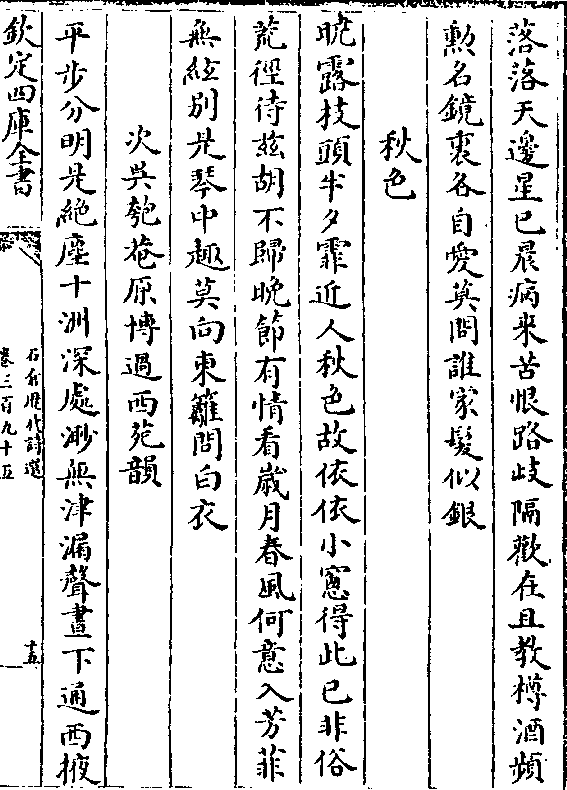 落落天邊星已晨病来苦恨路歧隔歡在且教樽酒頻
勲名鏡裏各自愛莫問誰家髮似銀
秋色
晚露枝頭半夕霏近人秋色故依依小窻得此已非俗
荒徑待兹胡不歸晚節有情看歲月春風何意入芳菲
無絃别是琴中趣莫向東籬問白衣
次吳匏菴原博過西苑韻
平步分明是絶塵十洲深處渺無津漏聲晝下通西掖
欽定四庫全書
石倉歷代詩選
卷三百九十五
十五